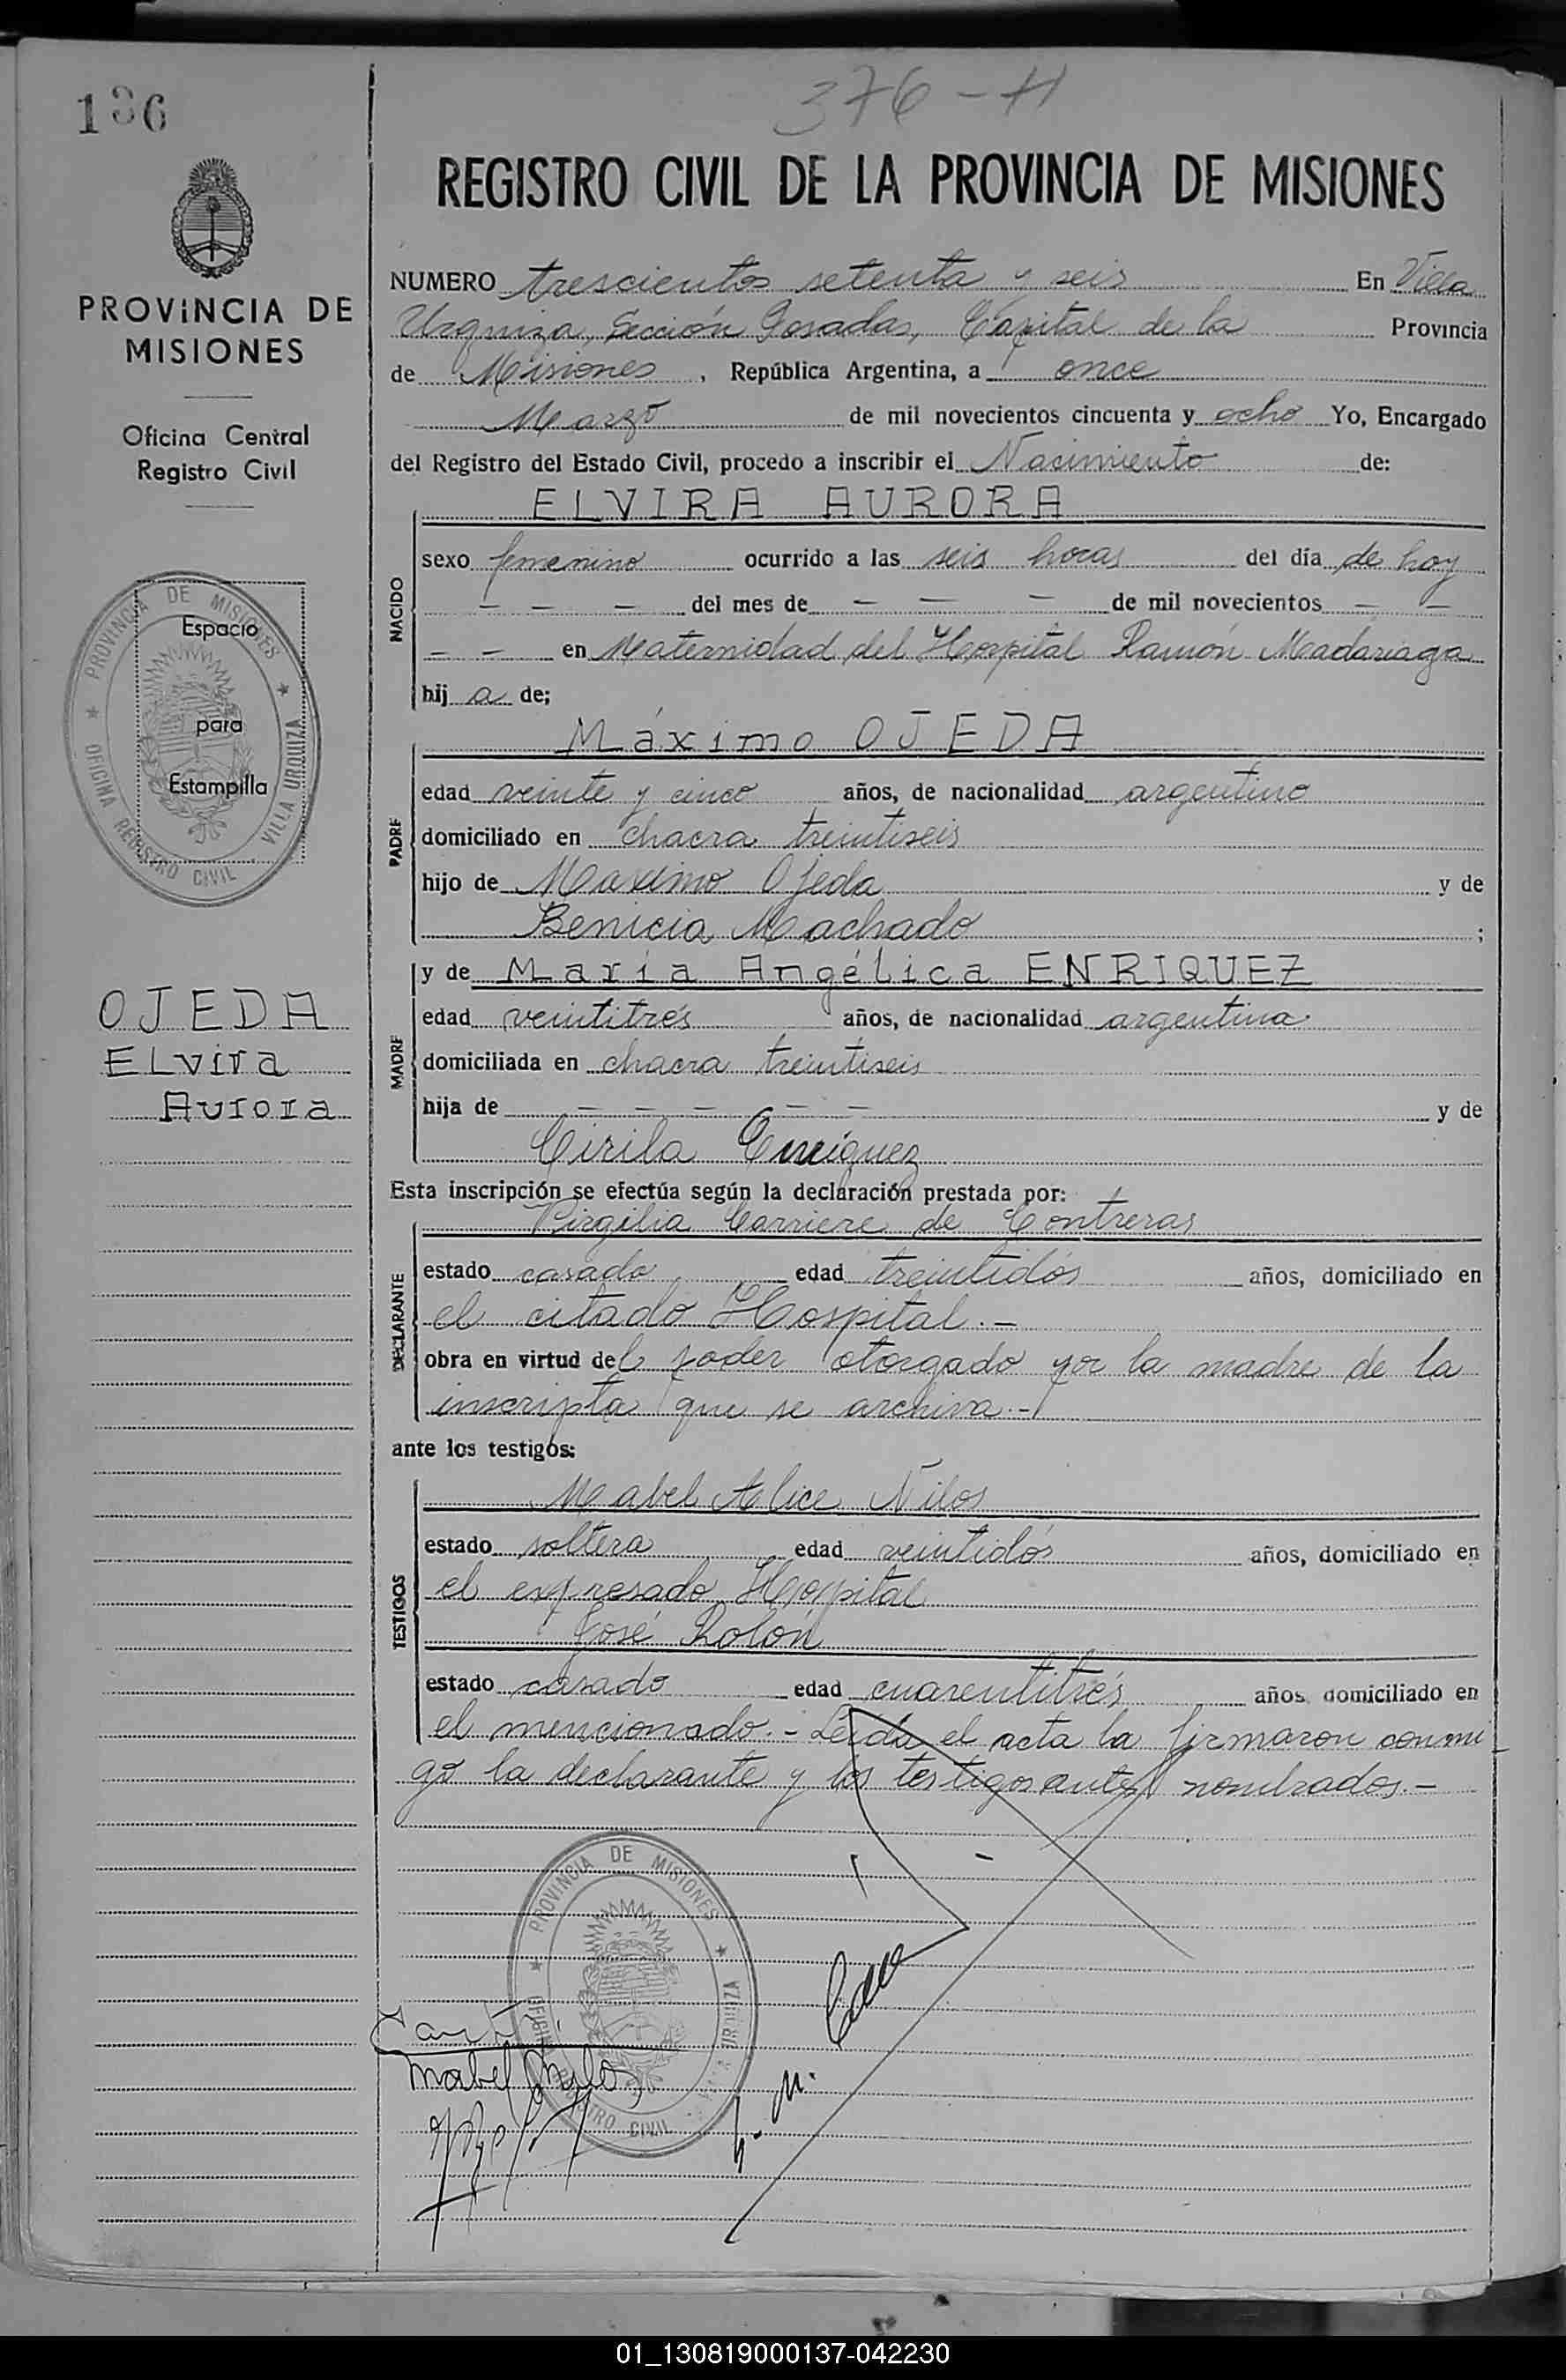 136
376 - H
REGISTRO CIVIL DE LA PROVINCIA DE MISIONES
PROVINCIA DE
MISIONES
Oficina Central
Registro Civil
PROVINCIA DE MISIONES
OFICINA REGISTRO CIVIL VILLA URQUIZA
Espacio
para
Estampilla
OJEDA
Elvira
Aurora
NUMERO trescientos setenta y seis En Villa
Urquiza, Sección Posadas, Capital de la Provincia
de Misiones, República Argentina, a once
Marzo de mil novecientos cincuenta y ocho Yo, Encargado
del Registro del Estado Civil, procedo a inscribir el Nacimiento de:
NACIDO
ELVIRA AURORA
sexo femenino ocurrido a las seis horas del día de hoy
- - - del mes de - - - de mil novecientos - -
- - en Maternidad del Hospital Ramón Madariaga
hij a de;
PADRE
Máximo OJEDA
edad veinte y cinco años, de nacionalidad argentino
domiciliado en chacra treintiseis
hijo de Maximo Ojeda y de
Benicia Machado ;
MADRE
y de María Angélica ENRIQUEZ
edad veintitrés años, de nacionalidad argentina
domiciliada en chacra treintiseis
hija de - - - - - y de
Cirila Enriquez
Esta inscripción se efectúa según la declaración prestada por:
DECLARANTE
Virgilia Carriere de Contreras
estado casada edad treintidós años, domiciliado en
el citado Hospital.-
obra en virtud del poder otorgado por la madre de la
inscripta que se archiva.-
ante los testigos:
TESTIGOS
Mabel Alice Nilos
estado soltera edad veintidós años, domiciliado en
el expresado Hospital
José Rolón
estado casado edad cuarentitrés años, domiciliado en
el mencionado.- Leída el acta la firmaron conmi
go la declarante y los testigos antes nombrados.-
PROVINCIA DE MISIONES
OFICINA REGISTRO CIVIL
Mabel Nylos
01_130819000137-042230